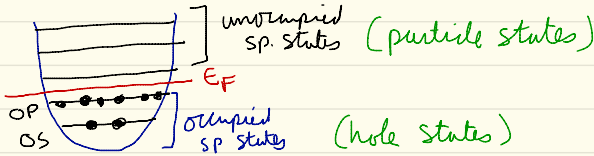 unoccupied
sp. states (particle states)
EF
0P
0S
occupied
sp states (hole states)